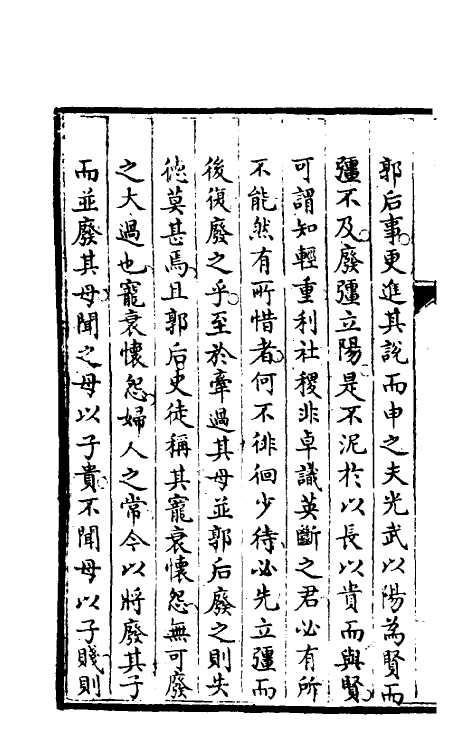 郭后事更進其說而申之夫光武以陽為賢而
彊不及廢彊立陽是不泥於以長以貴而與賢
可謂知輕重利社稷非卓識英斷之君必有所
不能然有所惜者何不徘徊少待必先立彊而
後復廢之乎至於牽過其母並郭后廢之則失
徳莫甚焉且郭后史徒稱其寵衰懷怨無可廢
之大過也寵衰懷怨婦人之常今以將廢其子
而並廢其母聞之母以子貴不聞母以子賤則